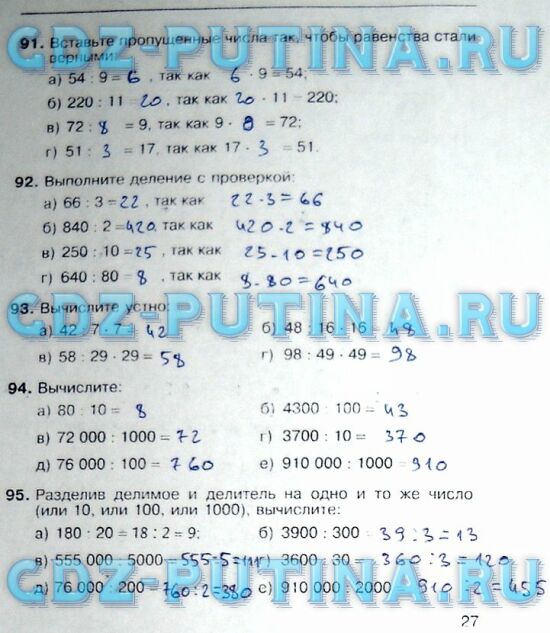 91. Вставьте пропущенные числа так, чтобы равенства стали
верными:
а) 54 : 9 = 6 , так как 6 · 9 = 54;
б) 220 : 11 = 20, так как 20 · 11 = 220;
в) 72 : 8 = 9, так как 9 · 8 = 72;
г) 51 : 3 = 17, так как 17 · 3 = 51.
92. Выполните деление с проверкой:
а) 66 : 3 = 22 , так как 22 · 3 = 66
б) 840 : 2 = 420, так как 420 · 2 = 840
в) 250 : 10 = 25 , так как 25 · 10 = 250
г) 640 : 80 = 8 , так как 8 · 80 = 640
93. Вычислите устно:
а) 42 : 7 · 7 = 42 б) 48 : 16 · 16 = 48
в) 58 : 29 · 29 = 58 г) 98 : 49 · 49 = 98
94. Вычислите:
а) 80 : 10 = 8 б) 4300 : 100 = 43
в) 72 000 : 1000 = 72 г) 3700 : 10 = 370
д) 76 000 : 100 = 760 е) 910 000 : 1000 = 910
95. Разделив делимое и делитель на одно и то же число
(или 10, или 100, или 1000), вычислите:
а) 180 : 20 = 18 : 2 = 9; б) 3900 : 300 = 39 : 3 = 13
в) 555 000 : 5000 = 555 : 5 = 111 г) 3600 : 30 = 360 : 3 = 120
д) 76 000 : 200 = 760 : 2 = 380 е) 910 000 : 2000 = 910 : 2 = 455
27
GDZ-PUTINA.RU
GDZ-PUTINA.RU
GDZ-PUTINA.RU